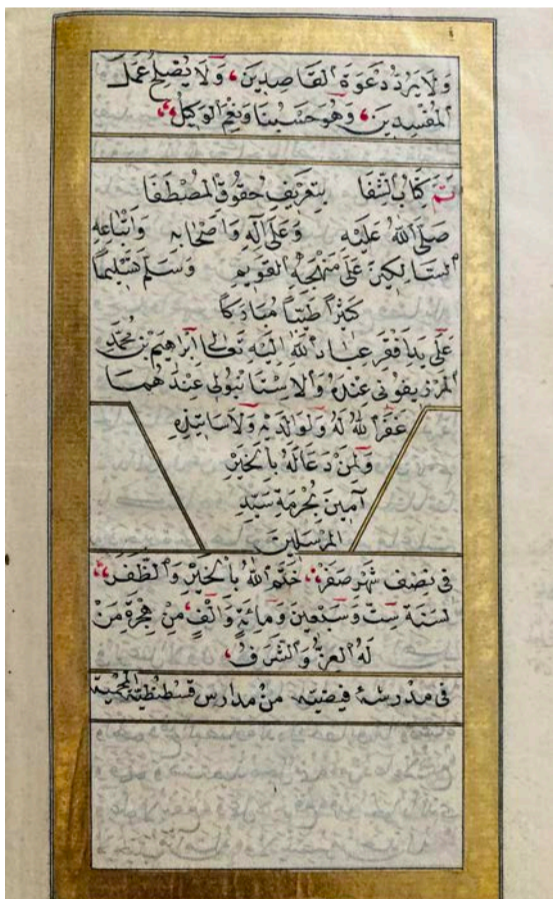 وَلَا يَرُدُّ دَعْوَةَ الْقَاصِدِينَ، وَلَا يُصْلِحُ عَمَلَ
الْمُفْسِدِينَ، وَهُوَ حَسْبُنَا وَنِعْمَ الْوَكِيلُ،
تَمَّ كِتَابُ الشِّفَا بِتَعْرِيفِ حُقُوقِ الْمُصْطَفَا
صَلَّى اللهُ عَلَيْهِ وَعَلَى آلِهِ وَاَصْحَابِهِ وَاَتْبَاعِهِ
السَّالِكِينَ عَلَى مَنْهَجِهِ الْقَوِيمِ وَسَلَّمَ تَسْلِيمًا
كَثِيرًا طَيِّبًا مُبَارَكًا
عَلَى يَدِ اَفْقَرِ عِبَادِ اللهِ اِلَيْهِ تَعَالَى اِبْرَاهِيمَ بْنِ مُحَمَّدٍ
الْمَرْزِيفُونِي عِنْدَهُ وَالْاِسْتَانْبُولِي عِنْدَهُمَا
غَفَرَ اللهُ لَهُ وَلِوَالِدَيْهِ وَلِاَسَاتِيذِهِ
وَلِمَنْ دَعَا لَهُ بِالْخَيْرِ
آمِينَ بِحُرْمَةِ سَيِّدِ
الْمُرْسَلِينَ
فِي نِصْفِ شَهْرِ صَفَرْ، خَتَمَ اللهُ بِالْخَيْرِ وَالظَّفَرْ،
لِسَنَةِ سِتٍّ وَسَبْعِينَ وَمِائَةٍ وَاَلْفٍ، مِنْ هِجْرَةِ مَنْ
لَهُ الْعِزُّ وَالشَّرَفُ،
فى مدرسۀ فيضيه من مدارس قسطنطنية المحمية